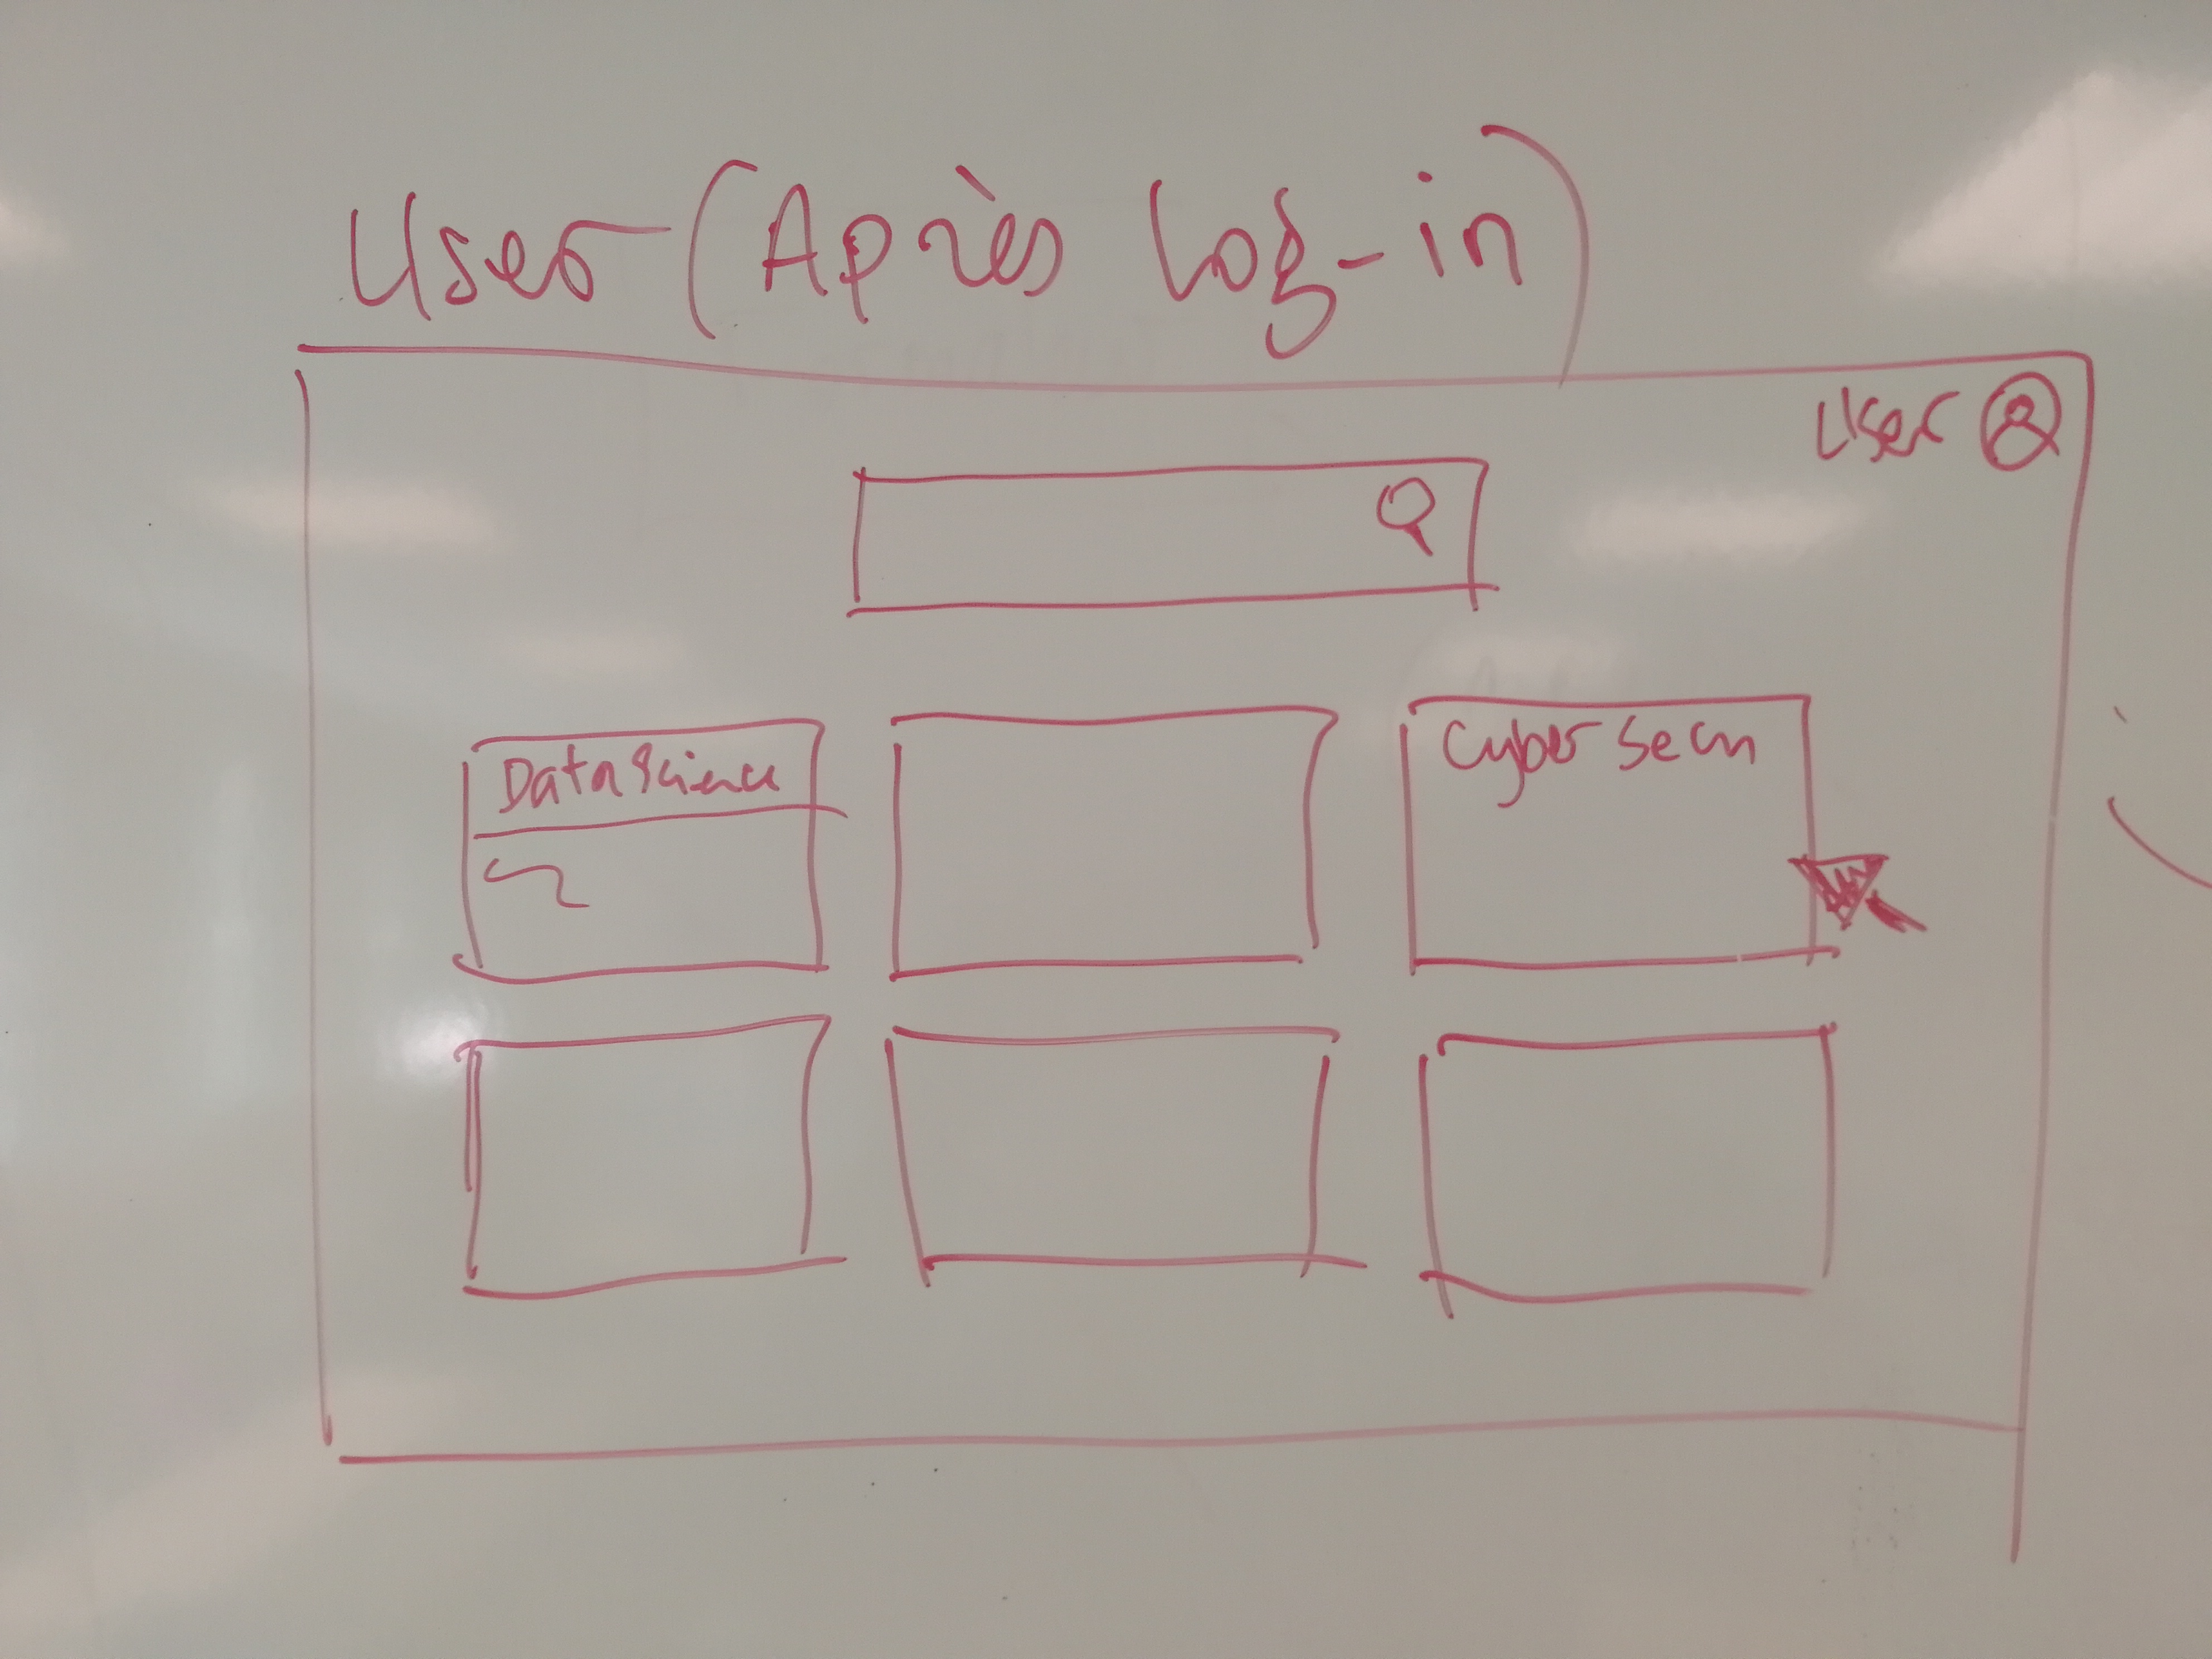 User (Après log-in)
User
Data Science
Cyber Secu